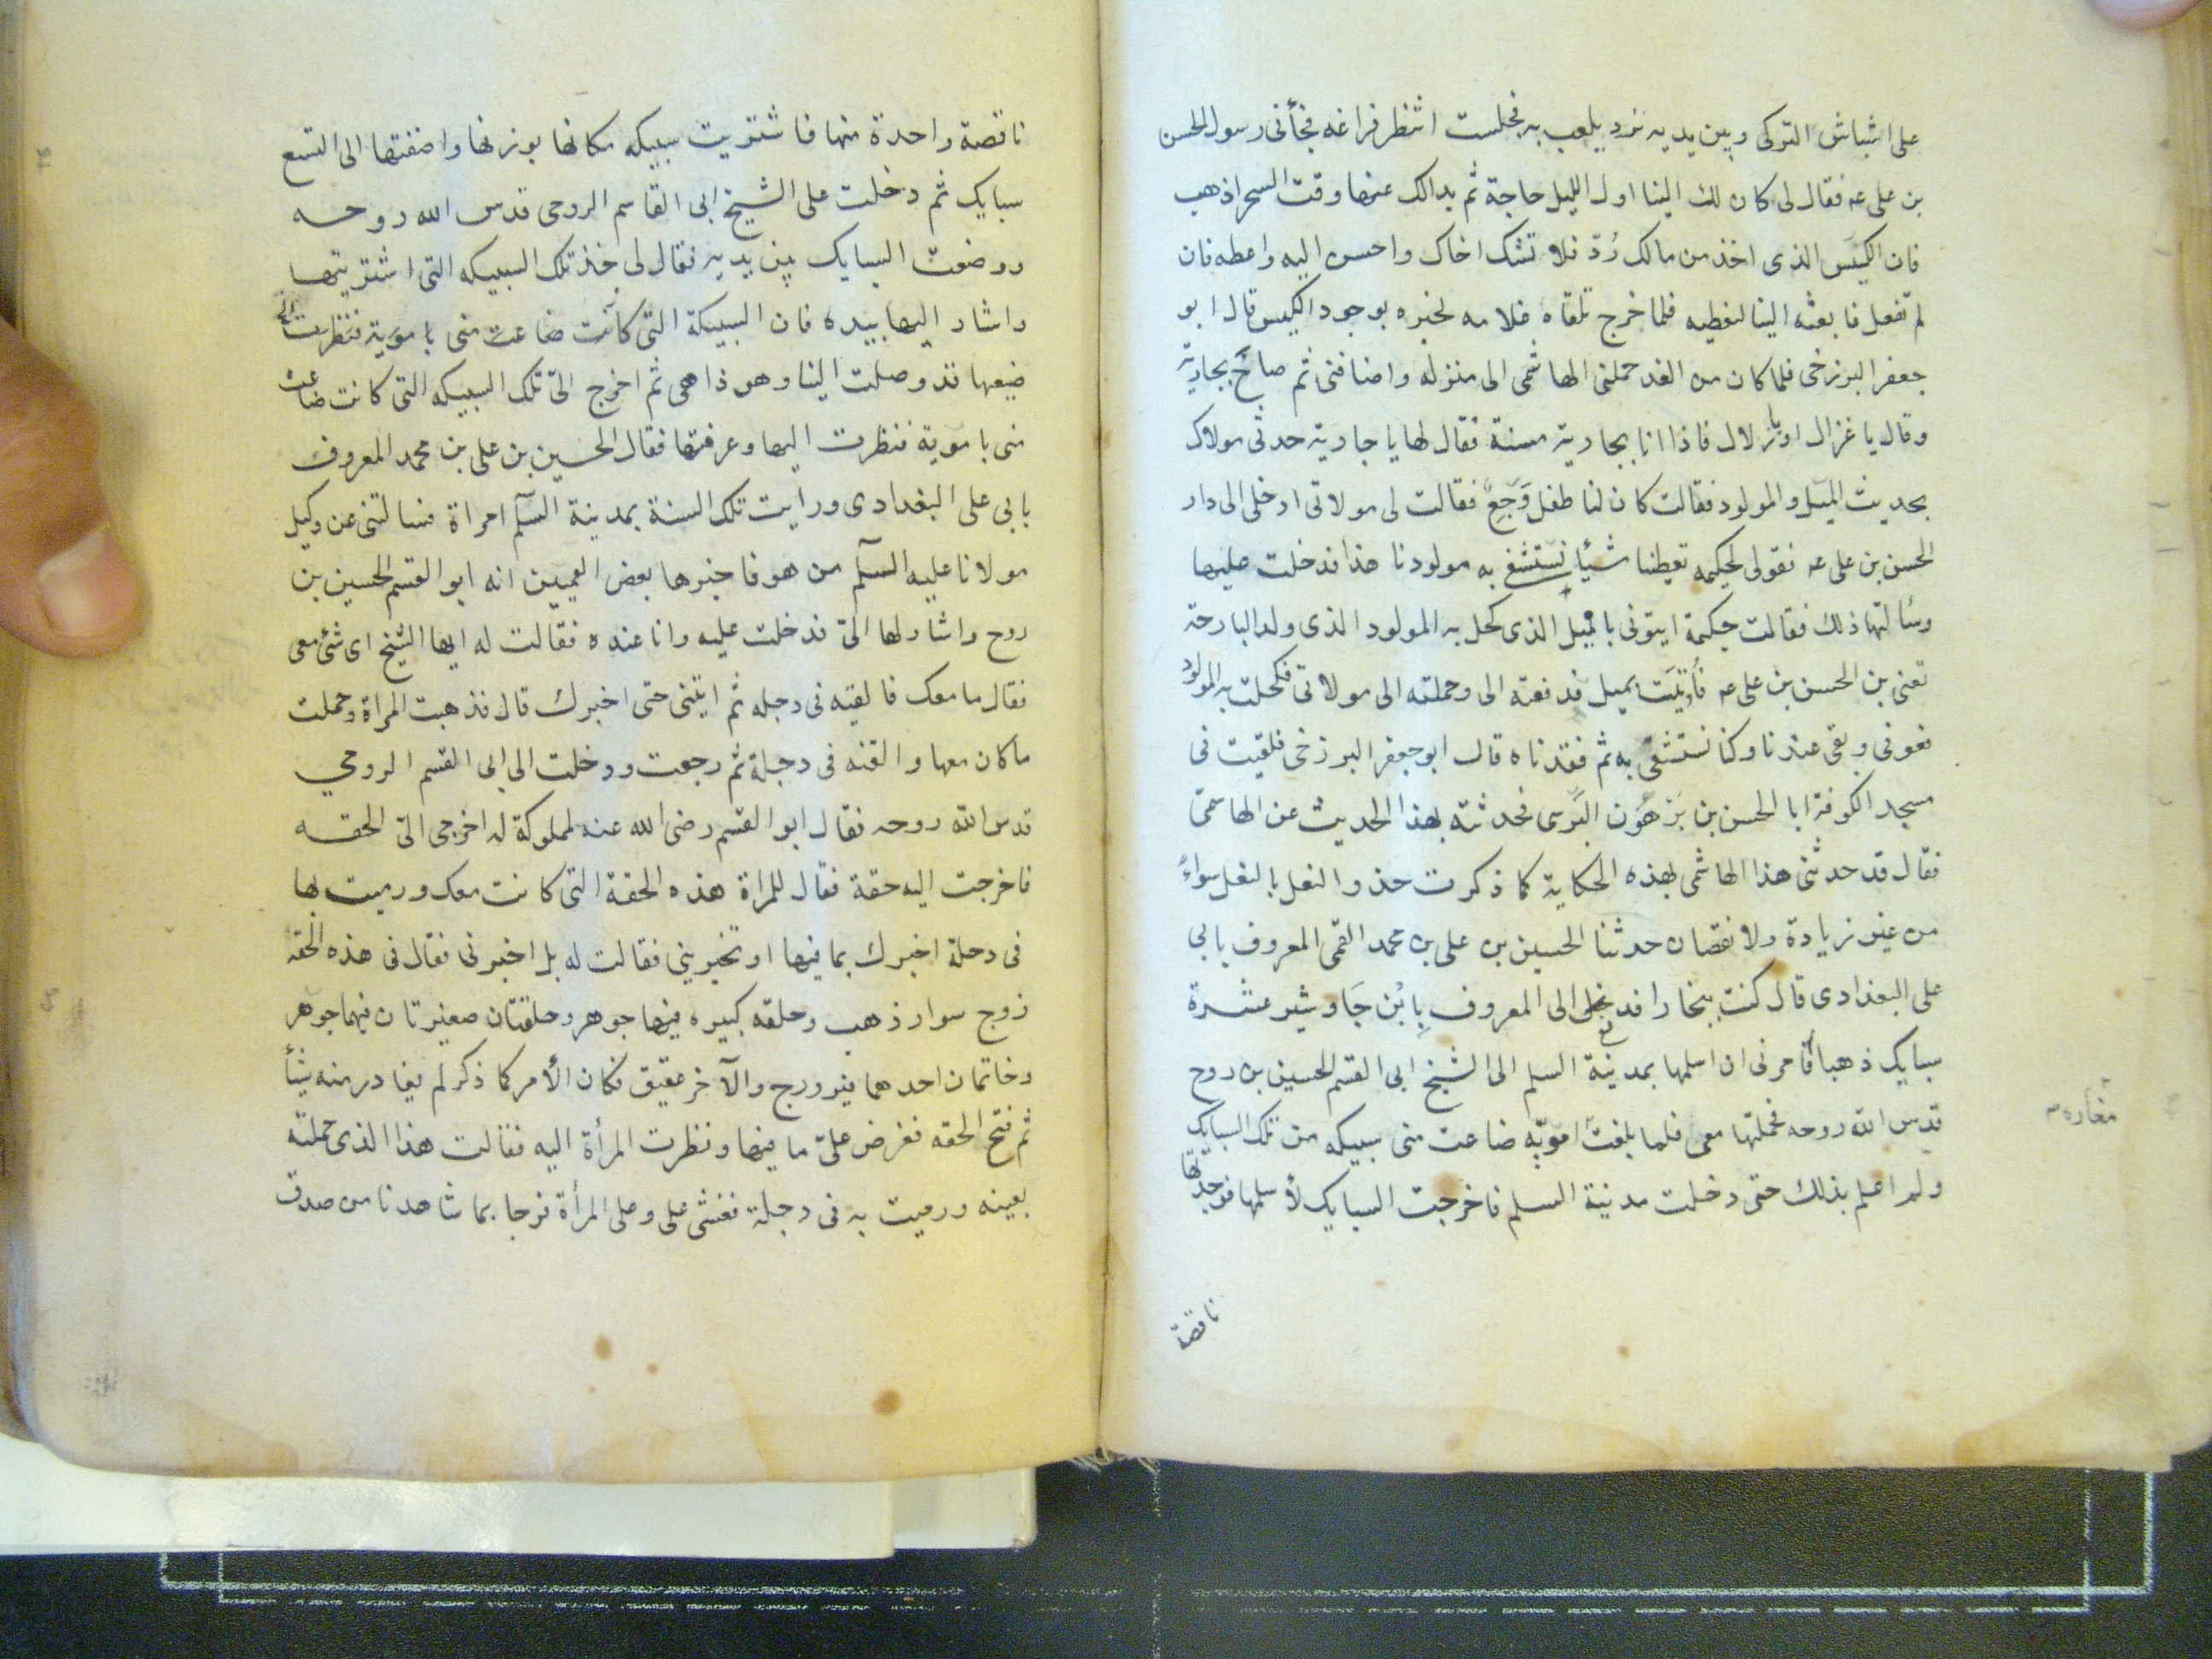 على اشباش التركى وبين يديه نرد يلعب به فجلست انتظر فراغه فجأنى رسول الحسن
بن على عه فقال لى كان لك الينا اول الليل حاجة ثم بدالك عنها وقت السحر اذهب
فان الكيس الذى اخذ من مالك رُدّ فلا تشك اخاك واحسن اليه واعطه فان
لم تفعل فابعثه الينا لنعطيه فلما خرج تلقاه غلامه يخبره بوجود الكيس قال ابو
جعفر البزرخى فلما كان من الغد حملنى الهاشمى الى منزله واضافنى ثم صاح بجارية
وقال يا غزال او يا زلال فاذا انا بجارية مسنة فقال لها يا جارية حدثى مولاك
بحديث الميل والمولود فقالت كان لنا طفل وَجِعٌ فقالت لى مولاتى ادخلى الى دار
الحسن بن على عه فقولى لحكيمه تعطينا شيئا نستشفى به مولودنا هذا فدخلت عليها
وسألتها ذلك فقالت حكيمة ايتونى بالميل الذى كحل به المولود الذى ولد البارحة
تعنى بن الحسن بن على عه فأُتيَت بميل فدفعته الى وحملته الى مولاتى فكحلت به المولود
فعوفى وبقى عندنا وكنا نستشفى به ثم فقدناه قال ابو جعفر البزرخى فلقيت فى
مسجد الكوفة ابا الحسن بن برهُون البرسى فحدثته بهذا الحديث عن الهاشمى
فقال قد حدثنى هذا الهاشمى بهذه الحكاية كما ذكرت حذو النعل بالنعل سواءً
من غير زيادة ولا نقصان حدثنا الحسين بن على بن محمد القمى المعروف بابى
على البغدادى قال كنت ببخارا فدفع الى المعروف بابْن جَاوشير عشرة
سبايك ذهبا فأمرنى ان اسلمها بمدينة السلم الى الشيخ ابى القسم الحسين بن روح
قدس الله روحه فحملتها معى فلما بلغت امويّه ضاعت منى سبيكه من تلك السبايك
ولم اعلم بذلك حتى دخلت مدينة السلم فاخرجت السبايك لأسلمها فوجدتها
ناقصة
مغاره م
ناقصة واحدة منها فاشتريت سبيكه مكانها بوزنها واضفتها الى التسع
سبايك ثم دخلت على الشيخ ابى القاسم الروحى قدس الله روحه
ووضعت السبايك بين يديه فقال لى خذ تلك السبيكه التى اشتريتها
واشار اليها بيده فان السبيكة التى كانت ضاعت منى بامويه فنظرت الى
ضيعها قد وصلت الينا وهو ذا هى ثم اخرج الىّ تلك السبيكه التى كانت ضاعت
منى بآموية فنظرت اليها وعرفتها فقال الحسين بن على بن محمد المعروف
بابى على البغدادى ورايت تلك السنة بمدينة السّلم امراة فسالتنى عن وكيل
مولانا عليه السلم من هو فاخبرها بعض القميين انه ابو القسم الحسين بن
روح واشار لها الىّ فدخلت عليه وانا عنده فقالت له ايها الشيخ اى شئ معى
فقال ما معك فالقيه فى دجله ثم ايتنى حتى اخبرك قال فذهبت المراة وحملت
ما كان معها والقته فى دجلة ثم رجعت ودخلت الى ابى القسم الروحى
قدس الله روحه فقال ابو القسم رضى الله عنه لمملوكة له اخرجى الىّ الحقه
فاخرجت اليه حقة فقال للمراة هذه الحقة التى كانت معك ورميت بها
فى دجلة اخبرك بما فيها او تخبرينى فقالت له بل اخبرنى فقال فى هذه الحقه
زوج سوار ذهب وحلقه كبيره فيها جوهر وحلقتان صغيرتان فيهما جوهر
وخاتمان احدهما فيروزج والآخر عقيق فكان الأمر كما ذكر لم يغادر منه شيئا
ثم فتح الحقه فعرض علىّ ما فيها ونظرت المرأة اليه فقالت هذا الذى حملته
بعينه ورميت به فى دجلة فغشى على وعلى المرأة فرحا بما شاهدنا من صدق